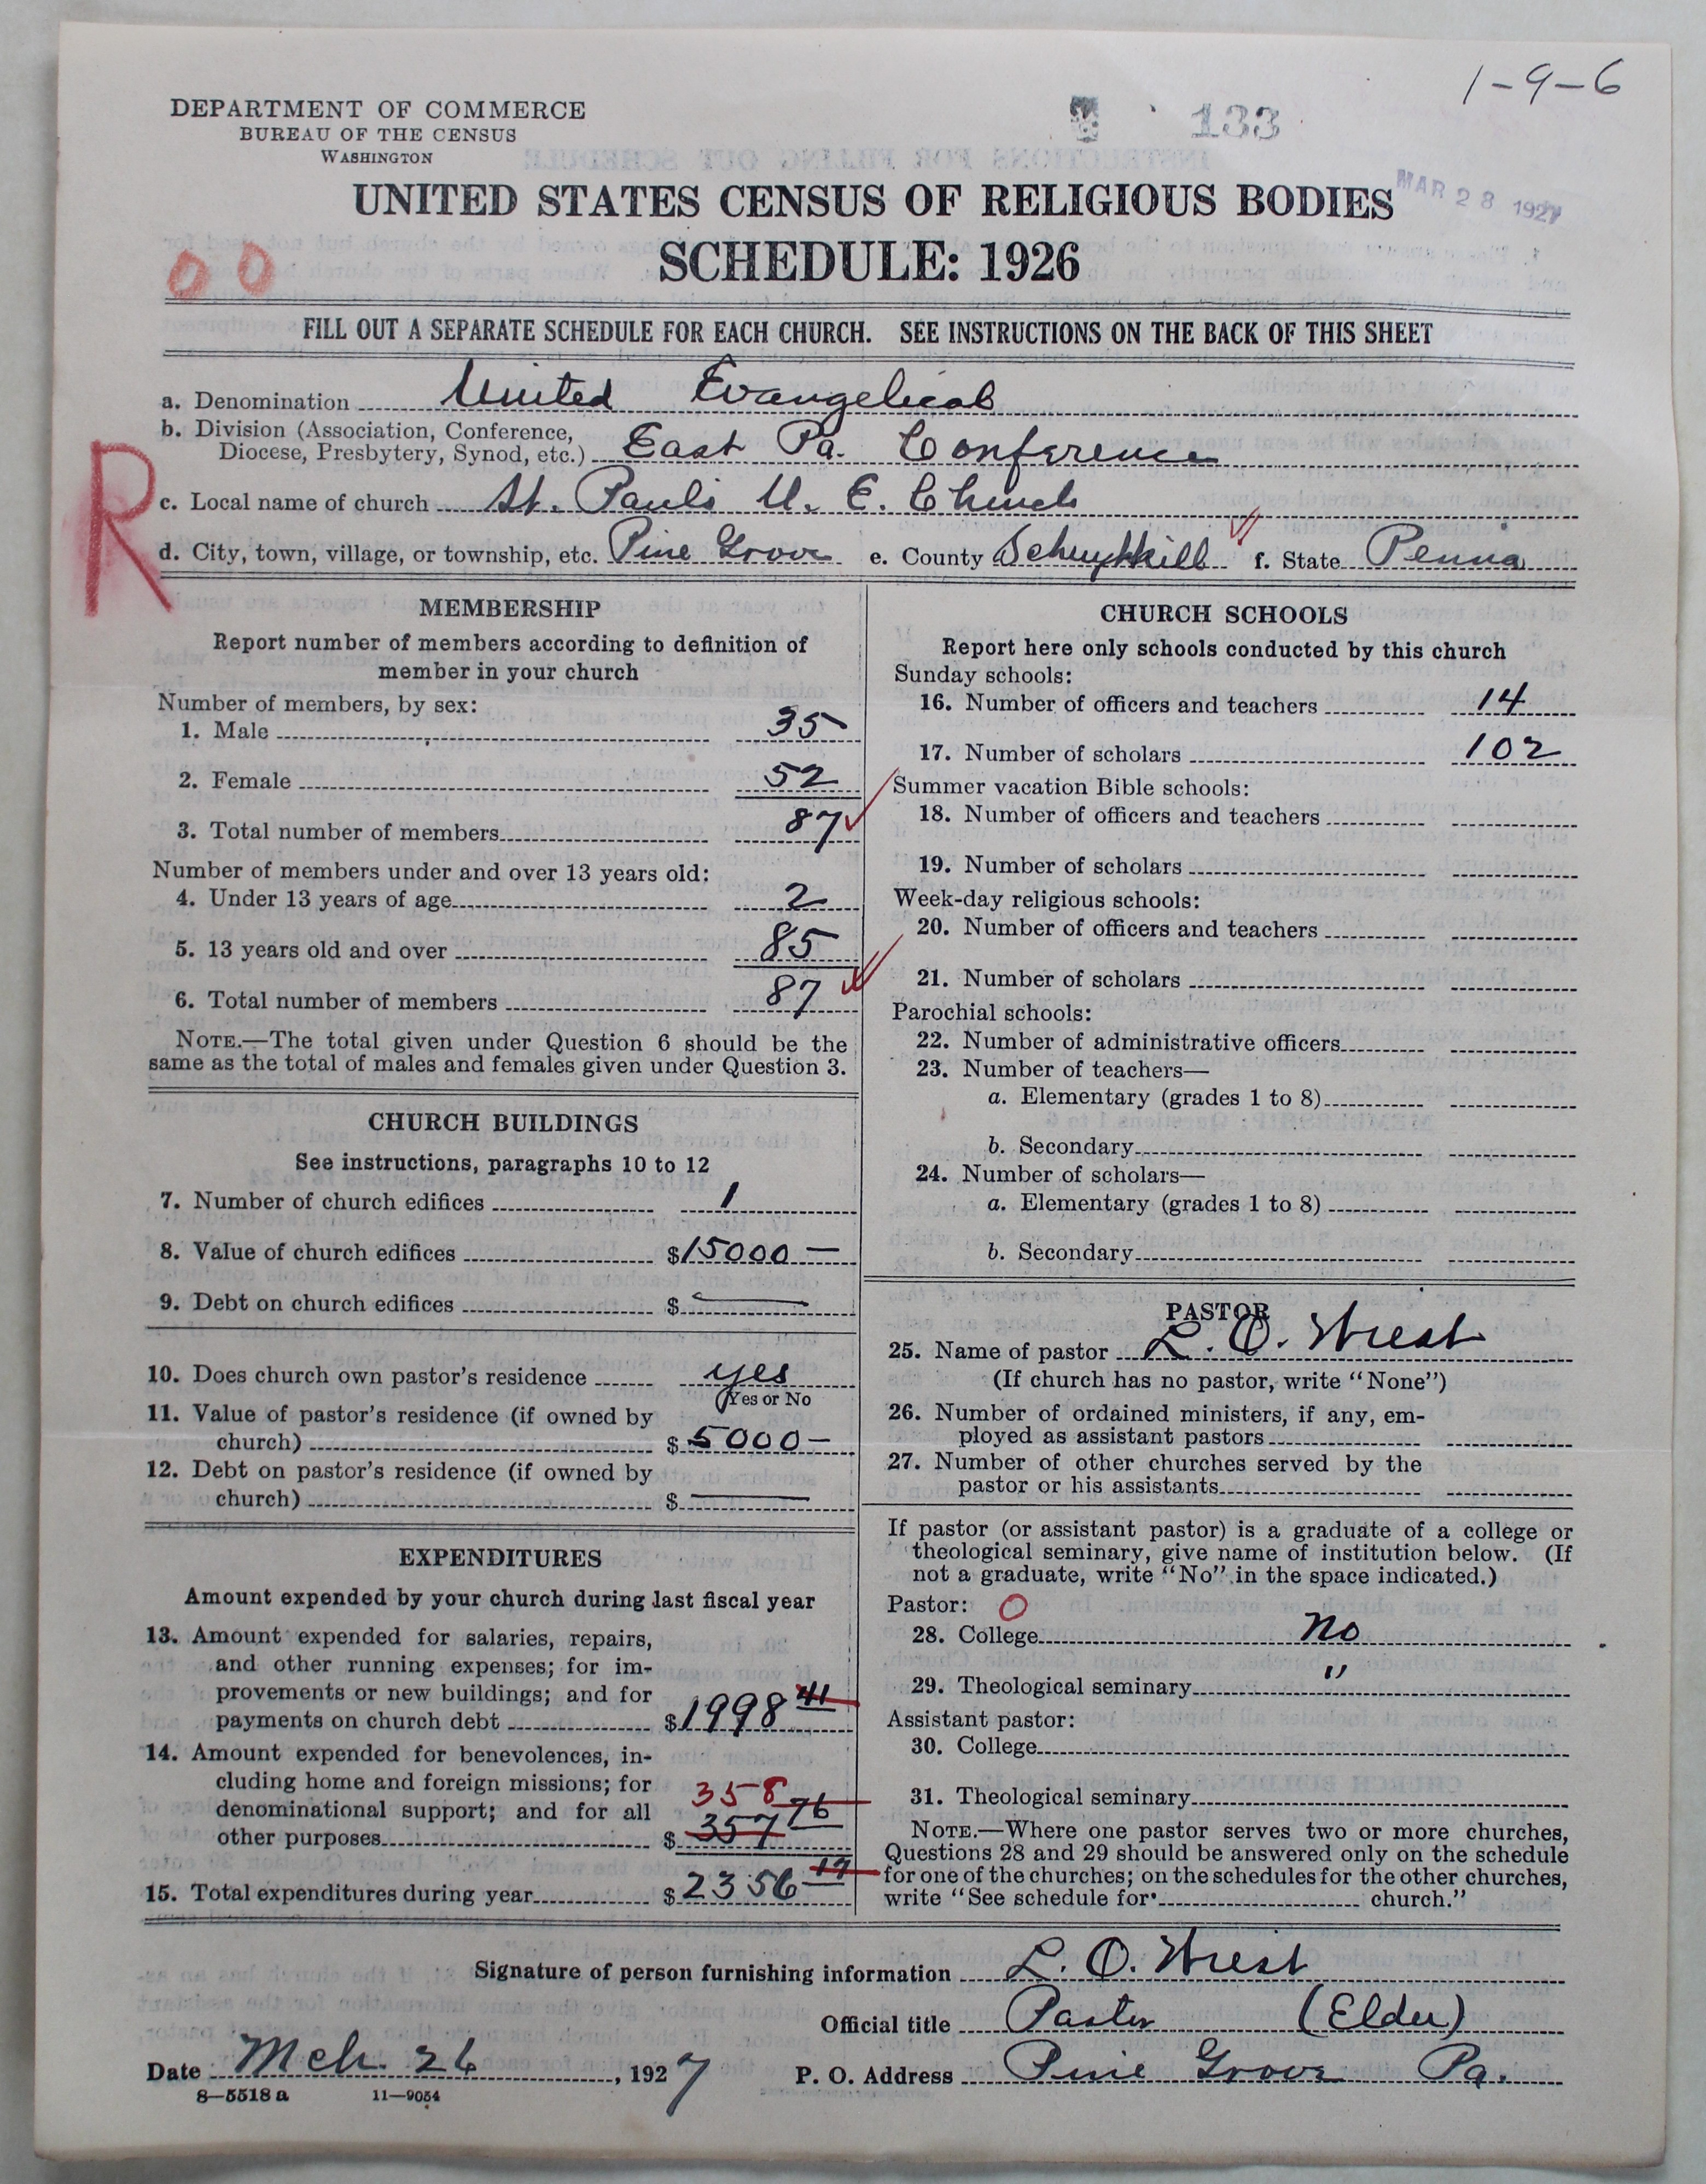 1-9-6
DEPARTMENT OF COMMERCE
BUREAU OF THE CENSUS
WASHINGTON
133
MAR 28 1927
UNITED STATES CENSUS OF RELIGIOUS BODIES
SCHEDULE: 1926
00
FILL OUT A SEPARATE SCHEDULE FOR EACH CHURCH. SEE INSTRUCTIONS ON THE BACK OF THIS SHEET
a. Denomination United Evangelical
b. Division (Association, Conference,
Diocese, Presbytery, Synod, etc.) East Pa. Conference
R
c. Local name of church St. Pauls U. E. Church
d. City, town, village, or township, etc. Pine Grove e. County Schuylkill f. State Penna
MEMBERSHIP
Report number of members according to definition of
member in your church
Number of members, by sex:
1. Male 35
2. Female 52
3. Total number of members 87
Number of members under and over 13 years old:
4. Under 13 years of age 2
5. 13 years old and over 85
6. Total number of members 87
NOTE.—The total given under Question 6 should be the
same as the total of males and females given under Question 3.
CHURCH BUILDINGS
See instructions, paragraphs 10 to 12
7. Number of church edifices 1
8. Value of church edifices $15000 —
9. Debt on church edifices $ —
10. Does church own pastor's residence yes
(Yes or No
11. Value of pastor's residence (if owned by
church) $5000 —
12. Debt on pastor's residence (if owned by
church) $ —
EXPENDITURES
Amount expended by your church during last fiscal year
13. Amount expended for salaries, repairs,
and other running expenses; for im-
provements or new buildings; and for
payments on church debt $1998 41
14. Amount expended for benevolences, in-
cluding home and foreign missions; for
denominational support; and for all 358
other purposes $357 76
15. Total expenditures during year $2356 17
CHURCH SCHOOLS
Report here only schools conducted by this church
Sunday schools:
16. Number of officers and teachers 14
17. Number of scholars 102
Summer vacation Bible schools:
18. Number of officers and teachers
19. Number of scholars
Week-day religious schools:
20. Number of officers and teachers
21. Number of scholars
Parochial schools:
22. Number of administrative officers
23. Number of teachers—
a. Elementary (grades 1 to 8)
b. Secondary
24. Number of scholars—
a. Elementary (grades 1 to 8)
b. Secondary
PASTOR
25. Name of pastor L. O. Wrest
(If church has no pastor, write "None")
26. Number of ordained ministers, if any, em-
ployed as assistant pastors
27. Number of other churches served by the
pastor or his assistants
If pastor (or assistant pastor) is a graduate of a college or
theological seminary, give name of institution below. (If
not a graduate, write "No" in the space indicated.)
Pastor: O
28. College No
29. Theological seminary "
Assistant pastor:
30. College
31. Theological seminary
NOTE.—Where one pastor serves two or more churches,
Questions 28 and 29 should be answered only on the schedule
for one of the churches; on the schedules for the other churches,
write "See schedule for church."
Signature of person furnishing information L. O. Wrest
Official title Pastor (Elder)
Date Mch. 26, 1927 P. O. Address Pine Grove Pa.
8—5518 a 11—9054